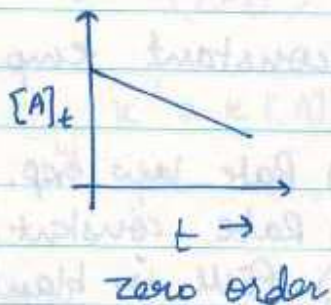 [A]t
t →
zero order